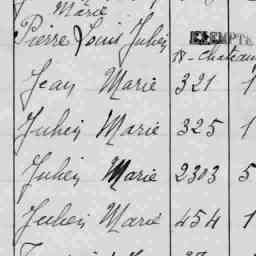 Marie
Pierre Louis Julien EXEMPTÉ
N-Chateau
Jean Marie 321 1
Julien Marie 325 1
Julien Marie 2303 5
Julien Marie 454 1